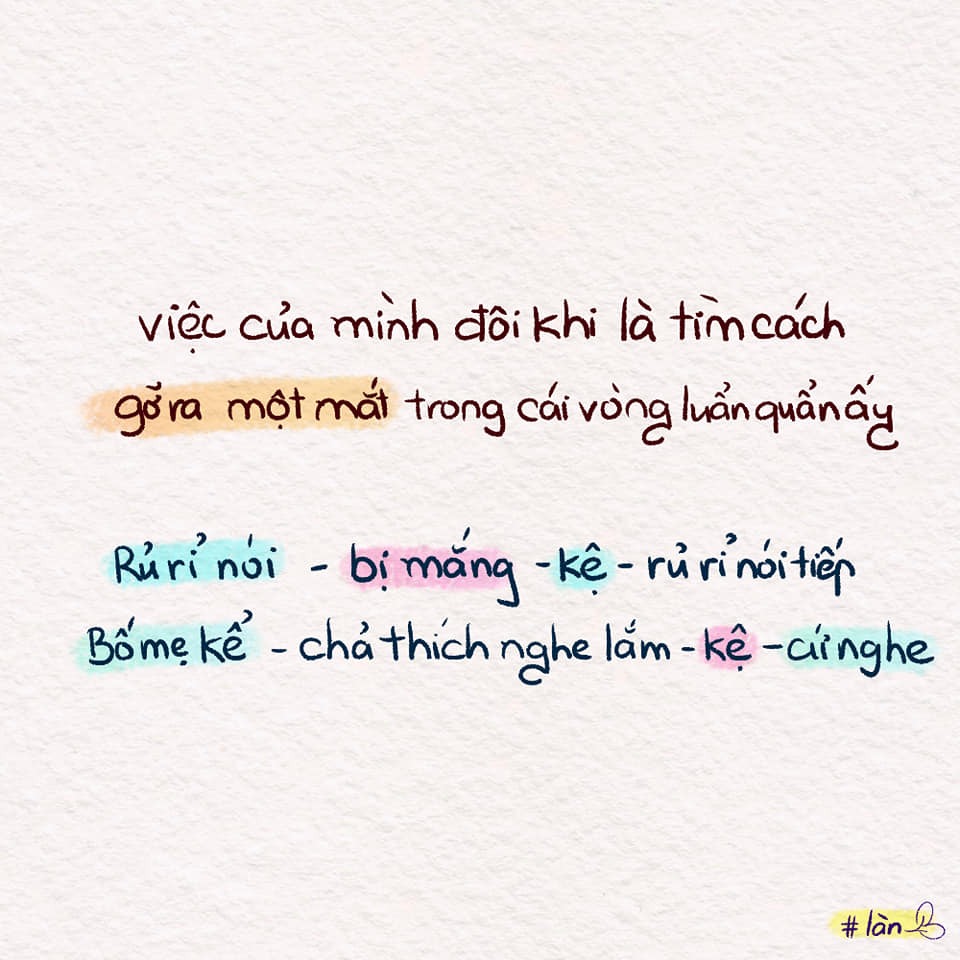 việc của mình đôi khi là tìm cách
gỡ ra một mắt trong cái vòng luẩn quẩn ấy
Rủ rỉ nói - bị mắng - kệ - rủ rỉ nói tiếp
Bố mẹ kể - chả thích nghe lắm - kệ - cứ nghe
#làn